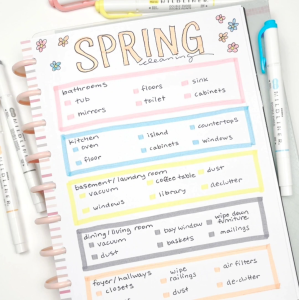 SPRING
cleaning
bathrooms
tub floors sink
mirrors toilet cabinets
kitchen
oven island countertops
floor cabinets windows
basement/laundry room
vacuum coffee table dust
windows library declutter
dining/living room
vacuum bay window wipe down furniture
dust baskets mailings
foyer/hallways
closets wipe railings air filters
dust de-clutter